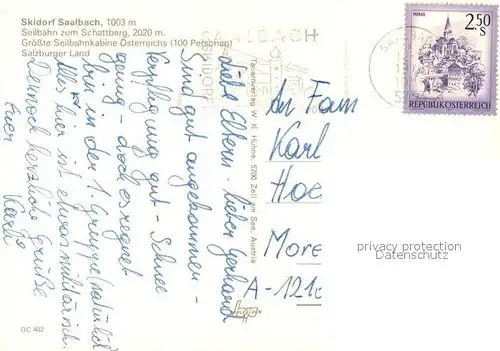 Skidorf Saalbach, 1003 m
Seilbahn zum Schattberg, 2020 m.
Größte Seilbahnkabine Österreichs (100 Personen)
Salzburger Land
SAALBACH
MURAU
2.50
S
REPUBLIK ÖSTERREICH
Liebe Eltern, lieber Gerhard
Sind gut angekommen -
Verpflegung gut - Schnee
genug - doch es regnet
bin in der 1 Gruppe (natürlich
Alles hier ist etwas militärisch.
Dennoch herzliche Grüße
Euer
Tauernverlag W. K. Hühne, 5700 Zell am See, Austria
An Fam
Karl
Hoe
More
A-121
privacy protection
for Collectors
OC 402